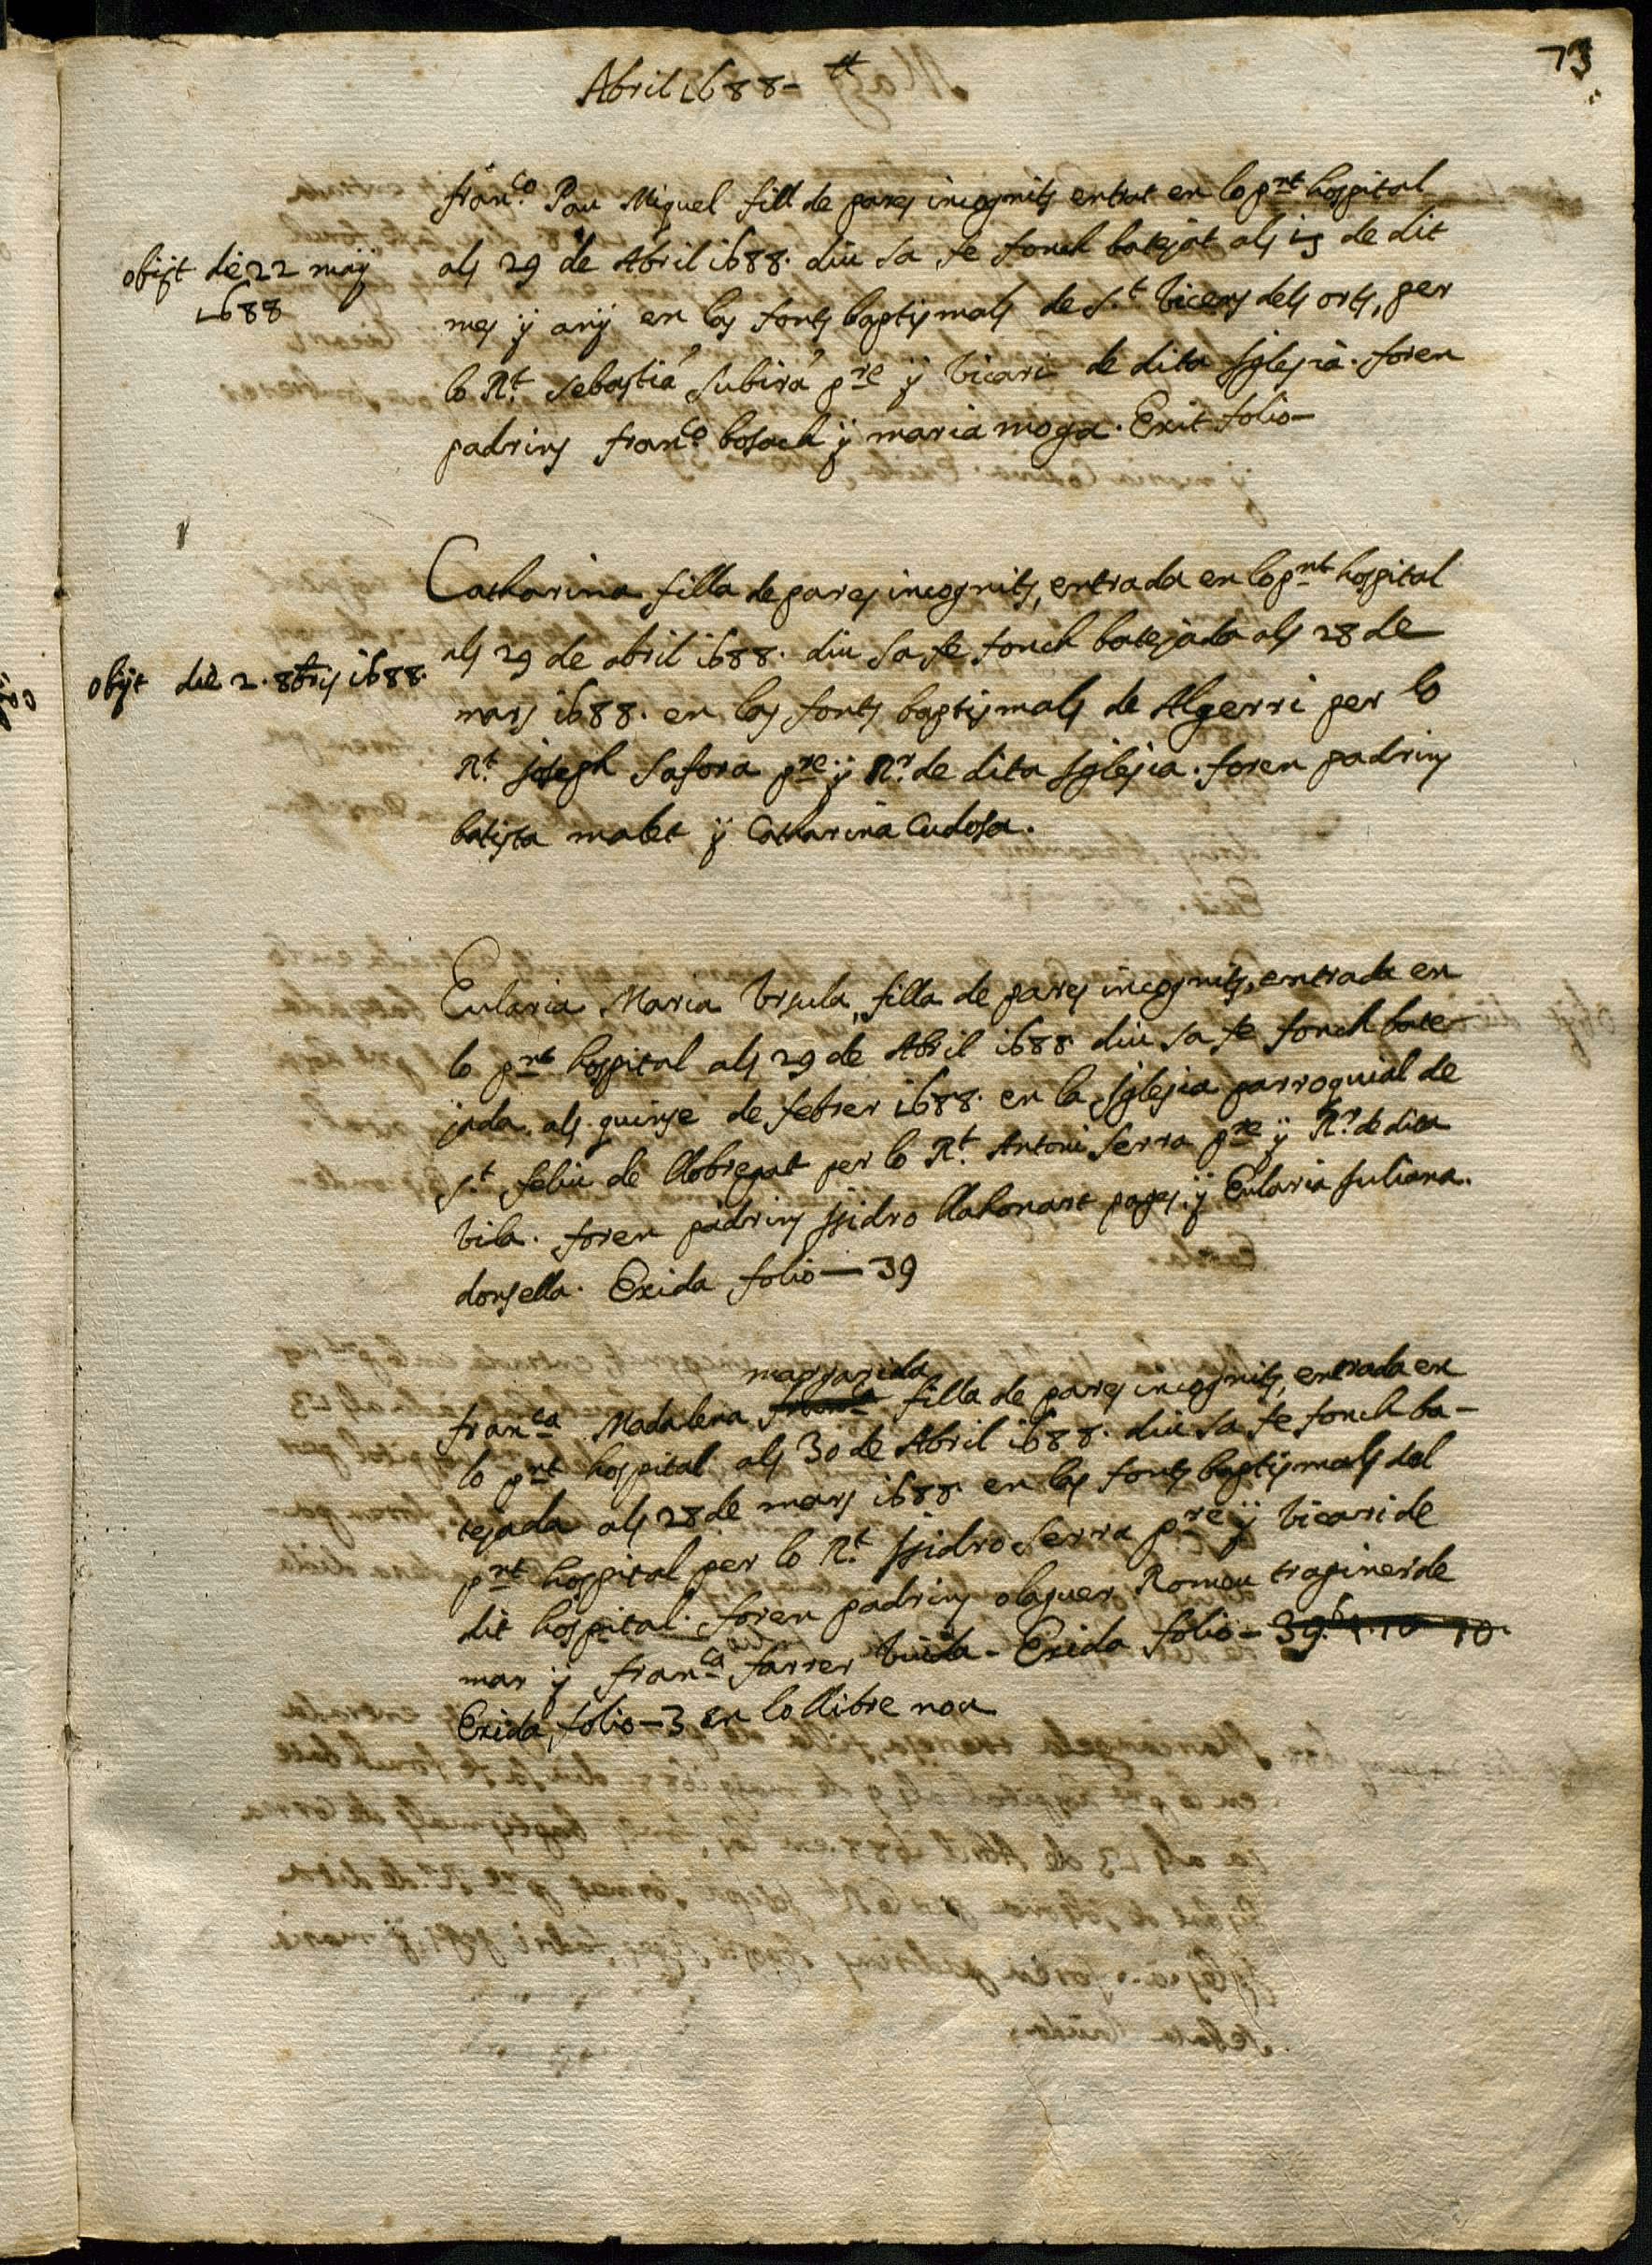 73
Abril 1688-
fran.co Pau Miquel fill de pares incognits entrat en lo pnt hospital
als 29 de Abril 1688. diu sa fe fonch batejat als 15 de dit
mes ÿ anÿ en las fonts baptismals de S.t Vicens dels orts, per
lo R.t Sebastià Subirà pre ÿ Vicari de dita Iglesia. foren
padrins fran.co bosach ÿ maria moga. Exit folio-
obijt die 22 maÿ
1688
Catharina filla de pares incognits, entrada en lo pnt hospital
als 29 de abril 1688. diu sa fe fonch batejada als 28 de
mars 1688. en las fonts baptismals de Algerri per lo
R.t joseph Safora pre ÿ R.r de dita Iglesia. foren padrins
batista malet ÿ Catharina Cudosa.
obijt die 2. 8bris 1688.
Eularia Maria Vrsula, filla de pares incognits, entrada en
lo pnt hospital als 29 de Abril 1688 diu sa fe fonch bate
jada als quinse de febrer 1688. en la Iglesia parroquial de
S.t feliu de llobregat per lo R.t Antoni Serra pre ÿ R.r de dita
vila. foren padrins Isidro llahonart pages, ÿ Eularia Juliana
donsella. Exida folio — 39
margarida
fran.ca Madalena fran.ca filla de pares incognits, entrada en
lo pnt hospital als 30 de Abril 1688. diu sa fe fonch ba-
tejada als 28 de mars 1688. en las fonts baptismals del
pnt hospital per lo R.t Isidro Serra pre ÿ Vicari de
dit hospital. foren padrins olaguer Romeu traginer de
mar ÿ fran.ca farrer viuda - Exida folio - 39
Exida, folio - 3 en lo llibre nou